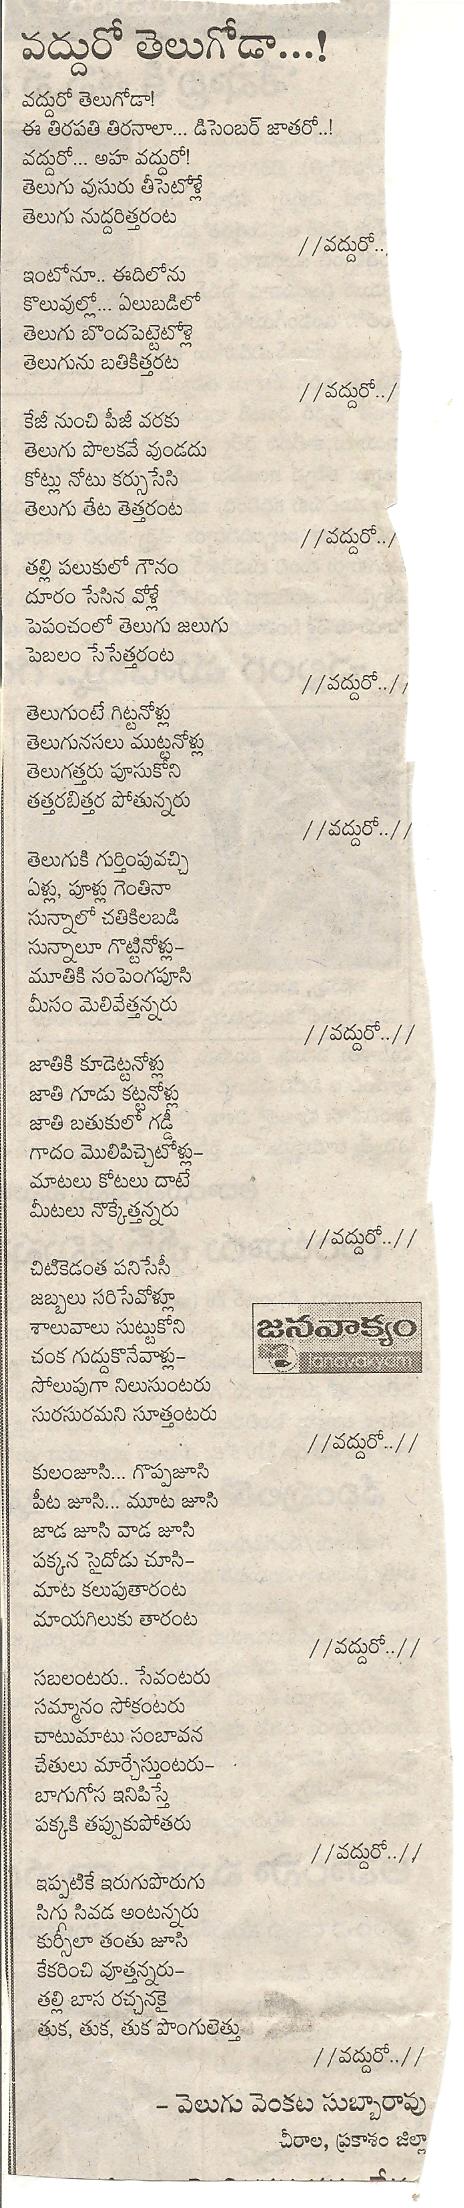 వద్దురో తెలుగోడా...!
వద్దురో తెలుగోడా!
ఈ తిరపతి తిరనాలా... డిసెంబర్ జాతరో..!
వద్దురో... అహ వద్దురో!
తెలుగు వుసురు తీసెటోళ్లే
తెలుగు నుద్దరిత్తరంట
//వద్దురో..
ఇంటోనూ.. ఈదిలోను
కొలువుల్లో... ఏలుబడిలో
తెలుగు బొందపెట్టెటోళ్లె
తెలుగును బతికిత్తరట
//వద్దురో../
కేజీ నుంచి పీజీ వరకు
తెలుగు పొలకవే వుండదు
కోట్లు నోటు కర్సుసేసి
తెలుగు తేట తెత్తరంట
//వద్దురో../
తల్లి పలుకులో గౌనం
దూరం సేసిన వోళ్లే
పెపంచంలో తెలుగు జలుగు
పెబలం సేసేత్తరంట
//వద్దురో..//
తెలుగుంటే గిట్టనోళ్లు
తెలుగునసలు ముట్టనోళ్లు
తెలుగత్తరు పూసుకోని
తత్తరబిత్తర పోతున్నరు
//వద్దురో..//
తెలుగుకి గుర్తింపువచ్చి
ఏళ్లు, పూళ్లు గెంతినా
సున్నాలో చతికిలబడి
సున్నాలూ గొట్టినోళ్లు–
మూతికి సంపెంగపూసి
మీసం మెలివేత్తన్నరు
//వద్దురో..//
జాతికి కూడెట్టనోళ్లు
జాతి గూడు కట్టనోళ్లు
జాతి బతుకులో గడ్డీ
గాదం మొలిపిచ్చెటోళ్లు–
మాటలు కోటలు దాటే
మీటలు నొక్కేత్తన్నరు
//వద్దురో..//
చిటికెడంత పనిసేసీ
జబ్బలు సరిసేవోళ్లూ
శాలువాలు సుట్టుకోని
చంక గుద్దుకొనేవాళ్లు–
సోలుపుగా నిలుసుంటరు
సురసురమని సూత్తంటరు
జనవాక్యం
janavakyam
//వద్దురో..//
కులంజూసి... గొప్పజూసి
పీట జూసి... మూట జూసి
జాడ జూసి వాడ జూసి
పక్కన సైదోడు చూసి–
మాట కలుపుతారంట
మాయగిలుకు తారంట
//వద్దురో..//
సబలంటరు.. సేవంటరు
సమ్మానం సోకంటరు
చాటుమాటు సంబావన
చేతులు మార్చేస్తుంటరు–
బాగుగోస ఇనిపిస్తే
పక్కకి తప్పుకుపోతరు
//వద్దురో..//
ఇప్పటికే ఇరుగుపొరుగు
సిగ్గు సివడ అంటన్నరు
కుర్సీలా తంతు జూసి
కేకరించి వూత్తన్నరు–
తల్లి బాస రచ్చనకై
తుక, తుక, తుక పొంగులెత్తు
//వద్దురో..//
– వెలుగు వెంకట సుబ్బారావు
చీరాల, ప్రకాశం జిల్లా